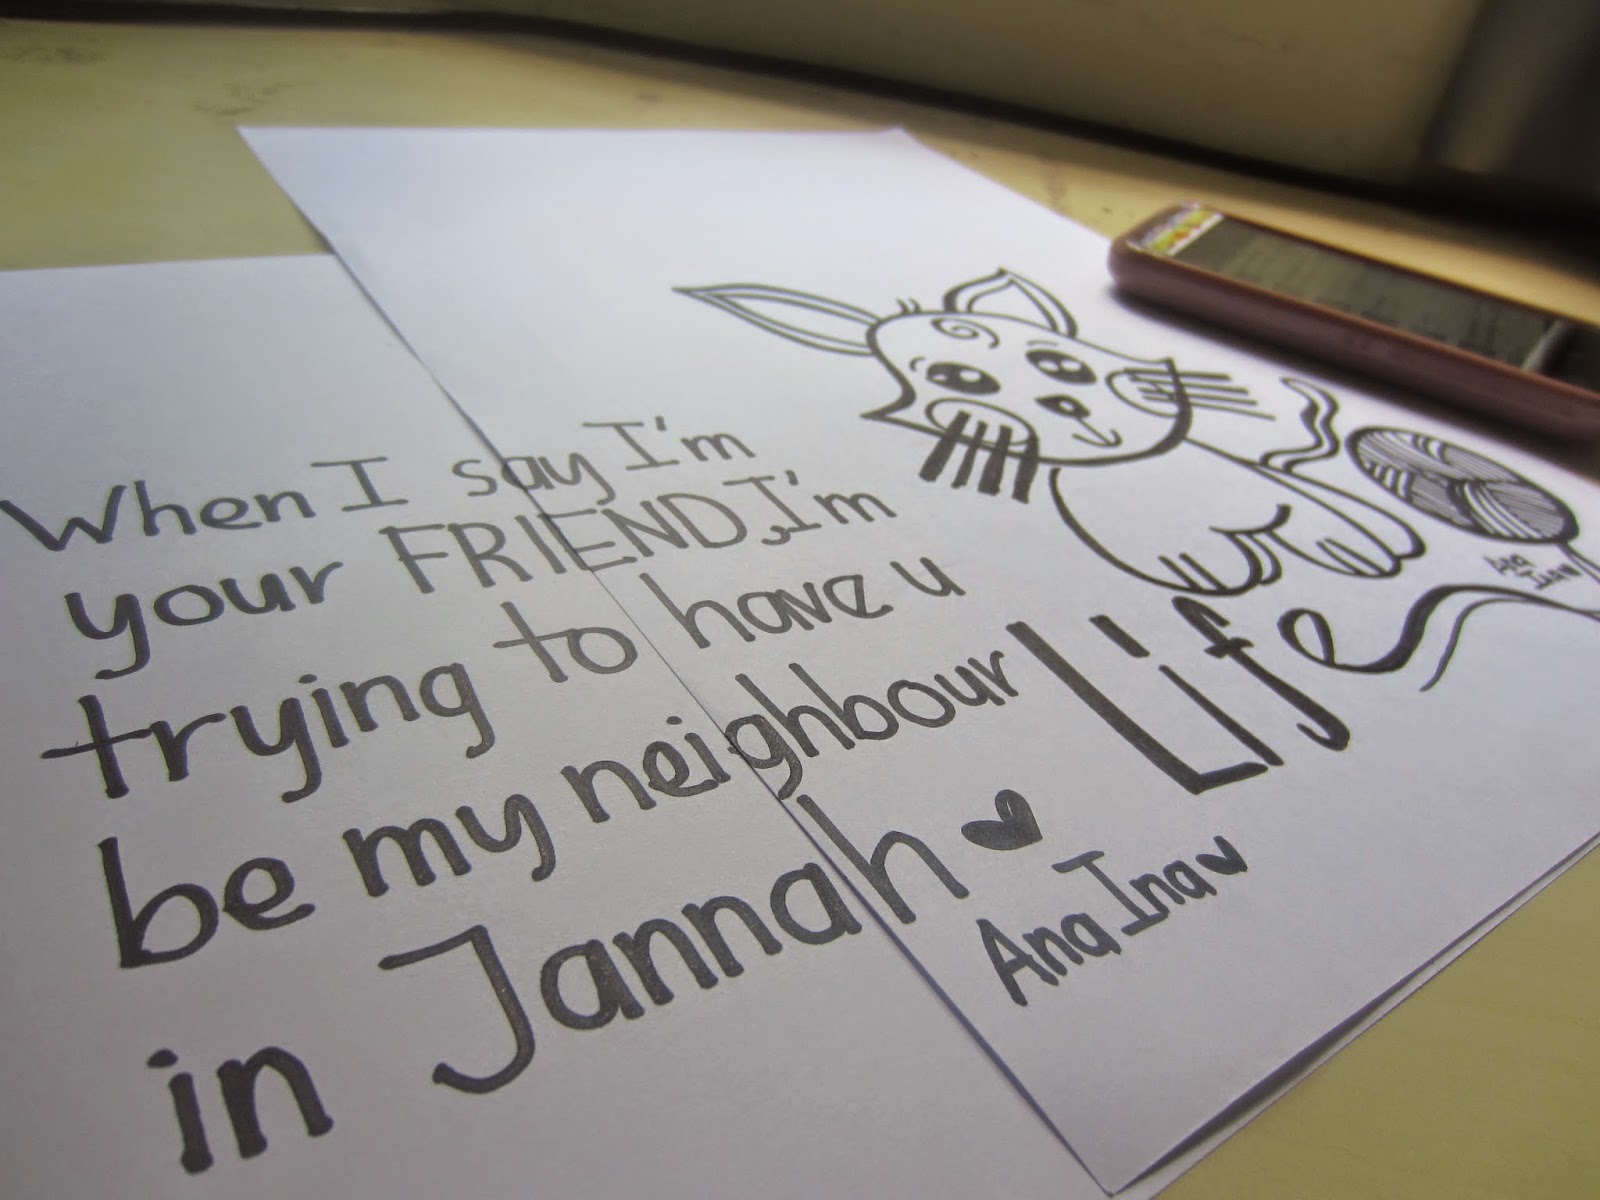 When I say I'm
your FRIEND, I'm
trying to have u
be my neighbour
in Jannah
Life
Ana Ina
Ana
Ina